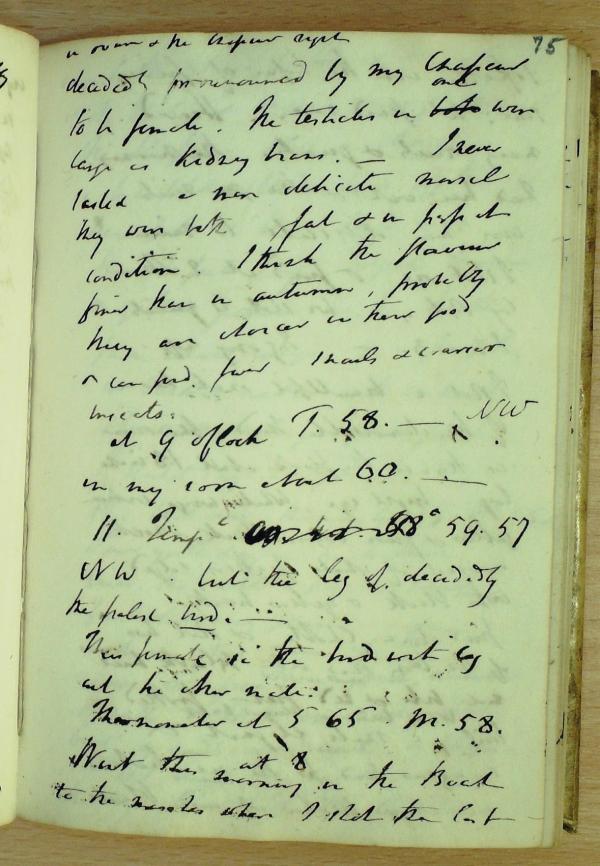 75
decidedly pronounced by my Chasseur
to be female. The testicles in one were
large as Kidney beans. — I never
tasted a more delicate morsel
they were both fat & in perfect
condition. I think the flavour
finer than in autumn, probably
they are choicer in their food
or can find fewer snails & coarser
insects:
at 9 o'clock T. 58. — NW
in my room about 60. —
11. Temp 59. 57
NW. but the leg of decidedly
the palest bird. —
This female is the bird with leg
out the other male:
Thermometer at 5 65. M. 58.
Went this morning at 8 in the Boat
to the marshes where I shot the last